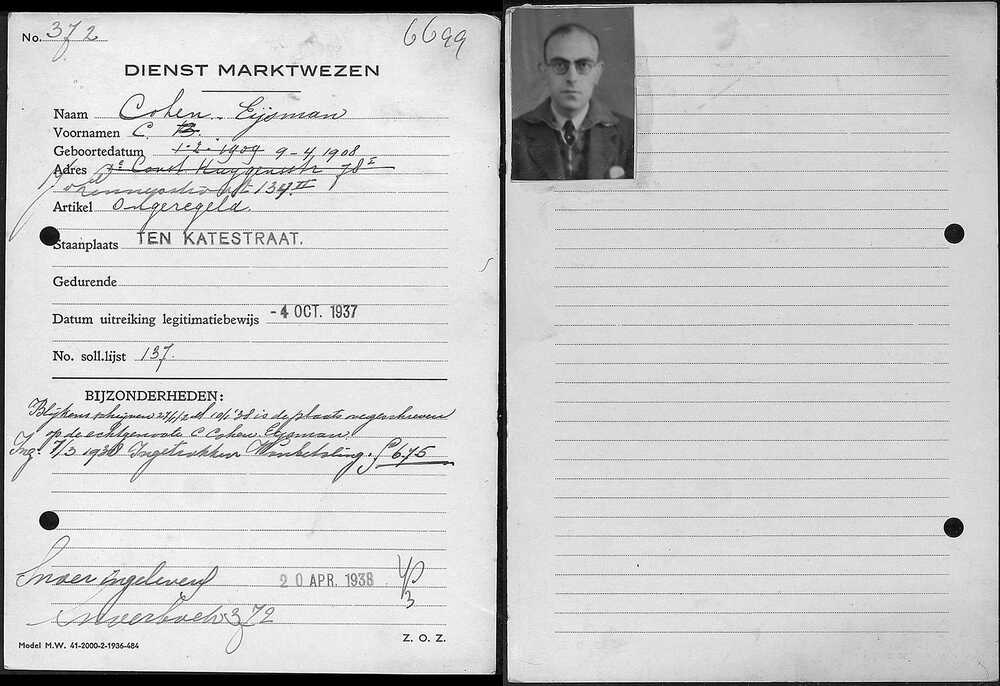 No. 372
6699
DIENST MARKTWEZEN
Naam Cohen - Eijsman
Voornamen C. B.
Geboortedatum 1-2-1909 9-4-1908
Adres 2e Const Huygensstr 78 I
134 II
Artikel Ongeregeld.
Staanplaats TEN KATESTRAAT.
Gedurende
Datum uitreiking legitimatiebewijs -4 OCT. 1937
No. soll.lijst 137.
BIJZONDERHEDEN:
Blijkens schrijven 10/1 '38 is de plaats overgeschreven
op de echtgenoote C Cohen-Eijsman
Ing. 7/3 1938 Ingetrokken Wanbetaling. f 6.75
Insver ingeleverd 20 APR. 1938
372
Model M.W. 41-2000-2-1936-484
Z. O. Z.